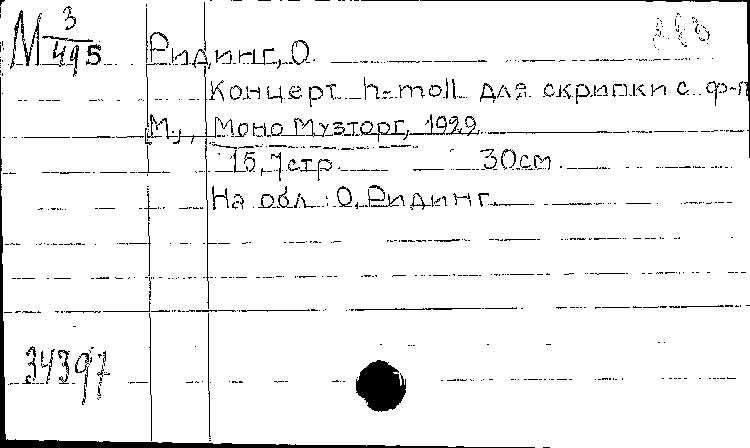 М 3/495
Ридинг, О.
Концерт h-moll для скрипки с ф-п
[М.], Моно Музторг, 1929
15,7 стр. 30см.
На обл.: О. Ридинг.
34397